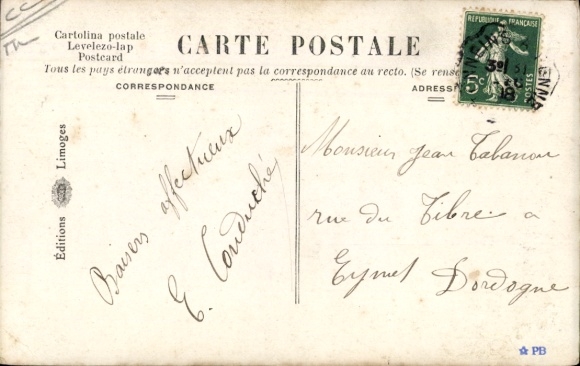 CC
Cartolina postale
Levelezo-lap
Postcard
CARTE POSTALE
Tous les pays étrangers n'acceptent pas la correspondance au recto. (Se rense
CORRESPONDANCE
ADRESS
RÉPUBLIQUE FRANÇAISE
5c
POSTES
Éditions Limoges
Baisers affectueux
E. Conduché
Monsieur Jean Tabanou
rue du Tibre a
Eymet Dordogne
PB